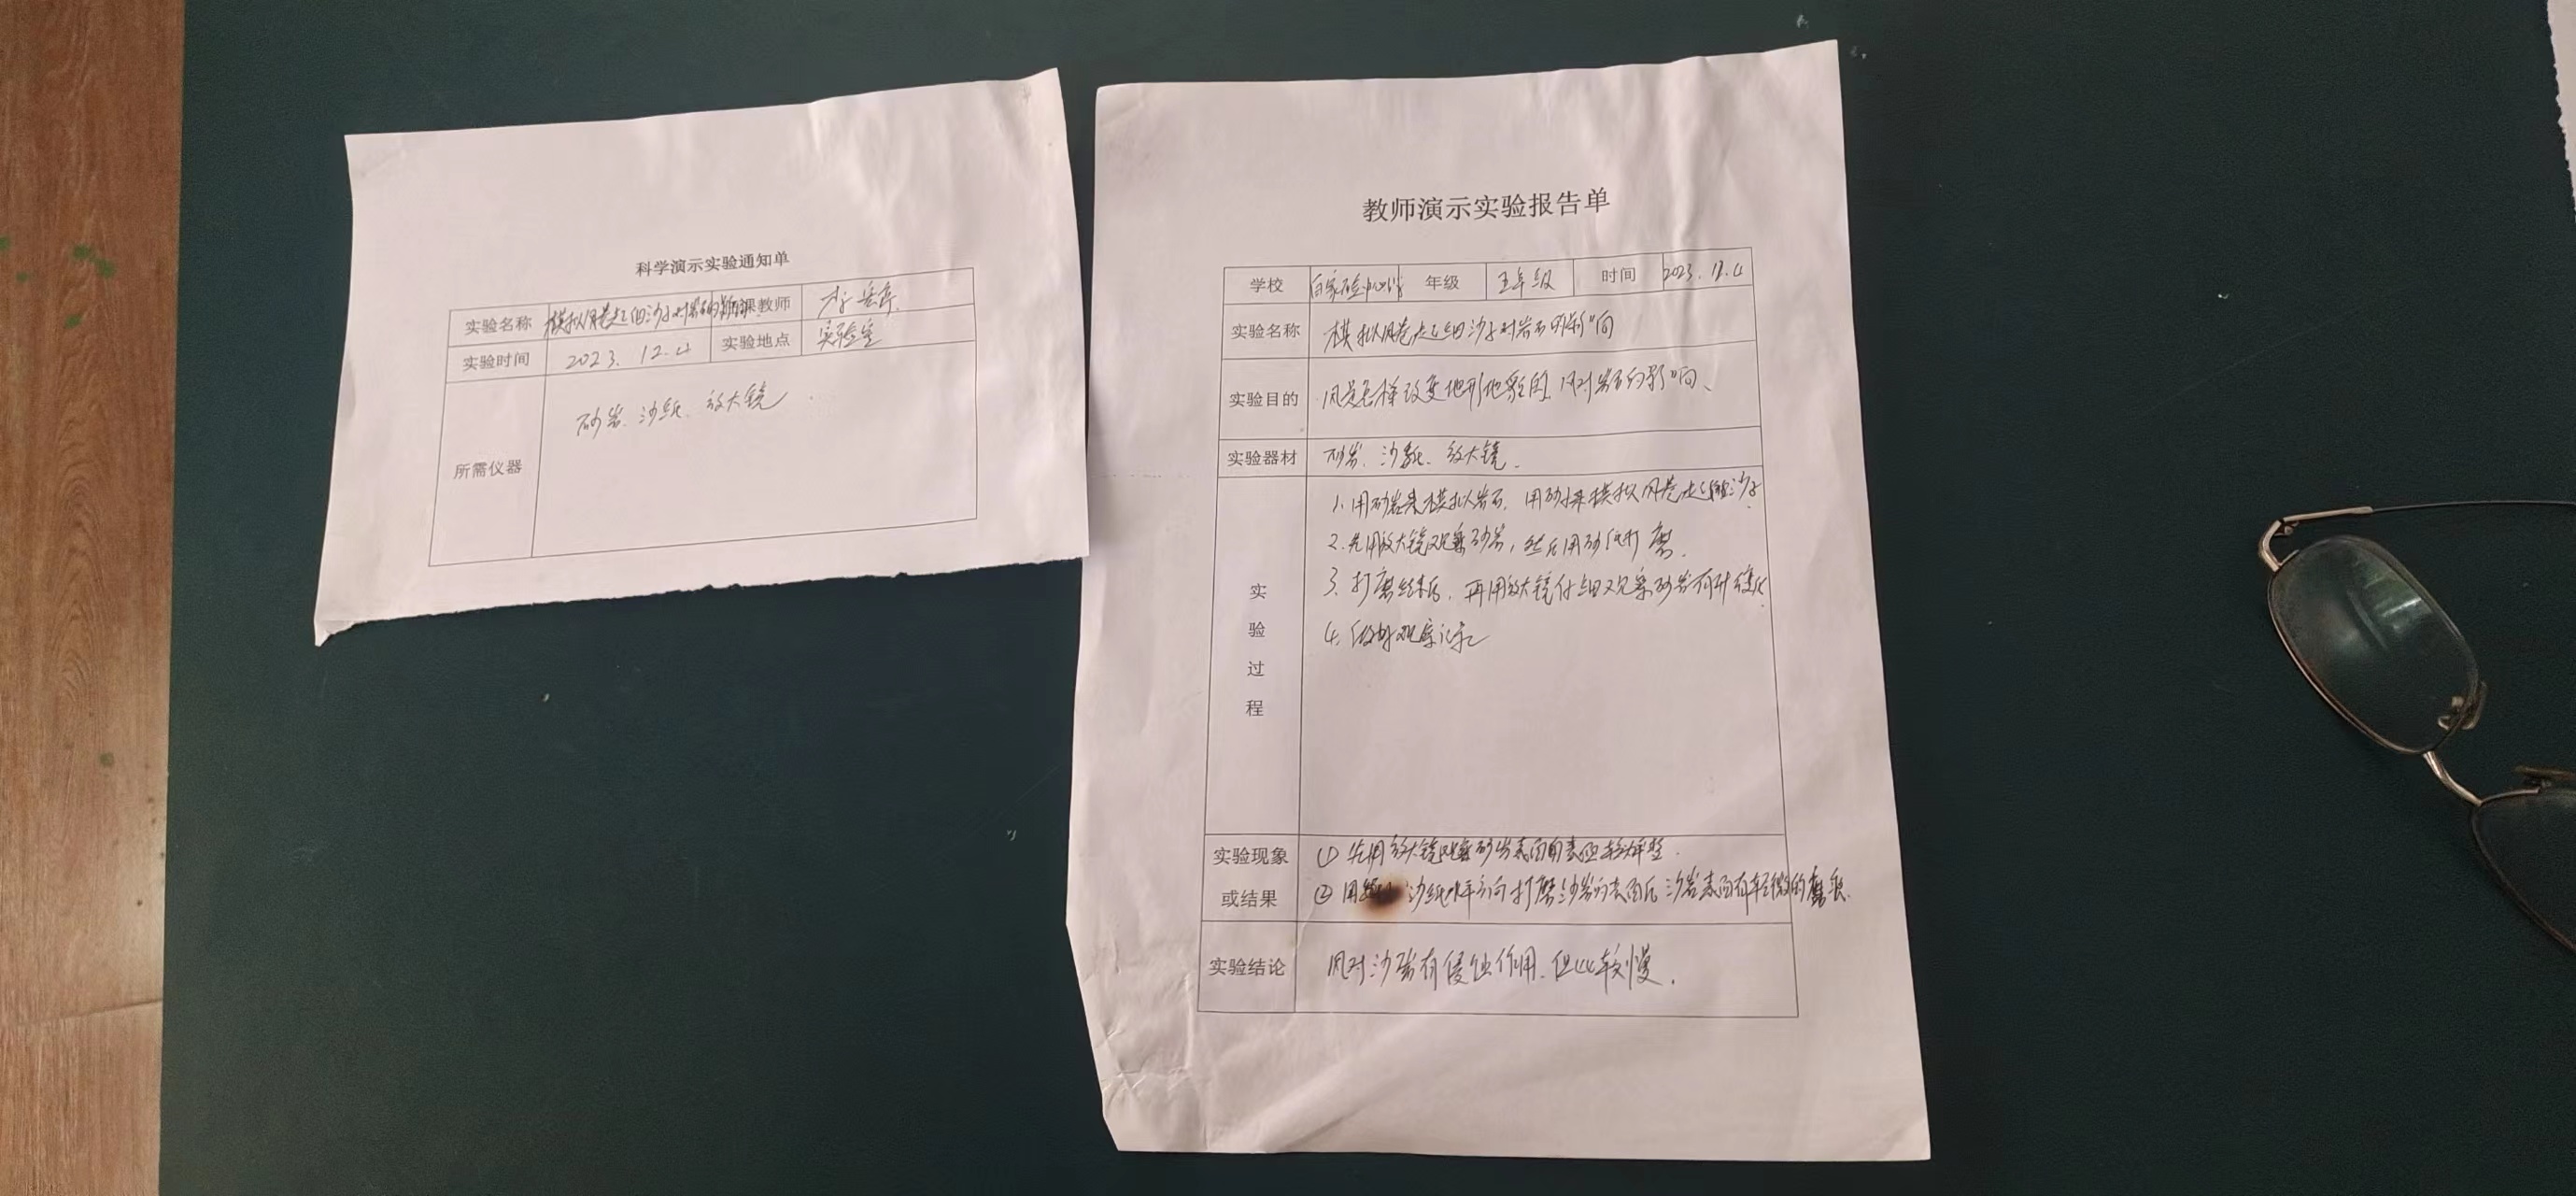 科学演示实验通知单
实验名称 模拟风卷起细沙对岩石的影响 任课教师 李
实验时间 2023.12.4 实验地点 实验室
所需仪器 砂岩、沙纸、放大镜
教师演示实验报告单
学校 中心 年级 五年级 时间 2023.12.4
实验名称 模拟风卷起细沙子对岩石的影响
实验目的 风是怎样改变地形地貌的、风对岩石的影响、
实验器材 砂岩、沙纸、放大镜、
实验过程
1、用砂岩来模拟岩石、用砂纸来模拟风卷起细沙子
2、先用放大镜观察砂岩，然后用砂纸打磨.
3、打磨结束后，再用放大镜仔细观察砂岩有什么变化
4、做好观察记录
实验现象 ① 先用放大镜观察砂岩表面较平整.
或结果 ② 用 沙纸水平方向打磨沙岩的表面后 沙岩表面有轻微的磨痕.
实验结论 风对沙岩有侵蚀作用、但比较慢.